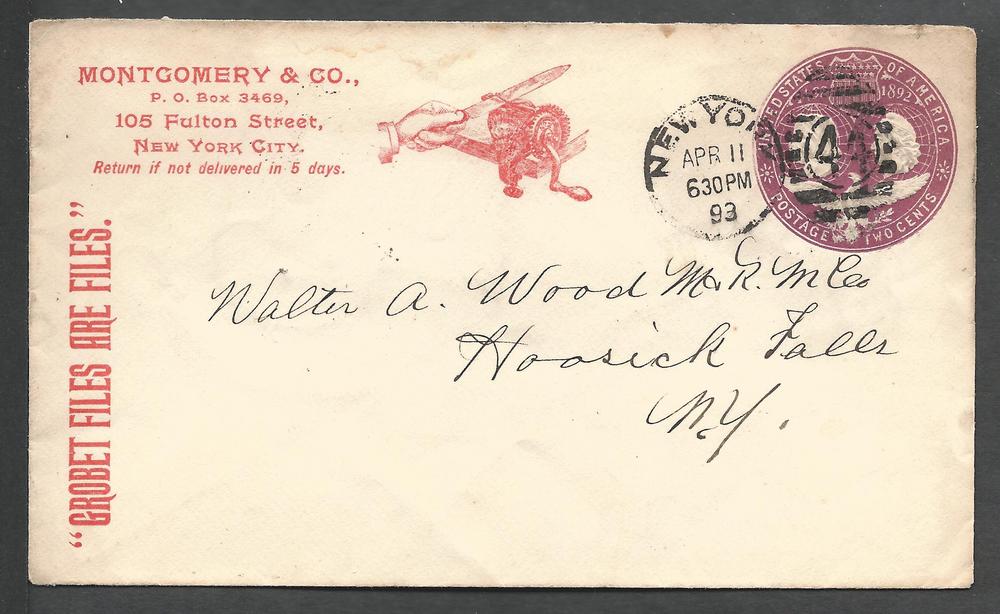 MONTGOMERY & CO.,
P. O. Box 3469,
105 Fulton Street,
NEW YORK CITY.
Return if not delivered in 5 days.
"GROBET FILES ARE FILES."
NEW YORK
APR 11
630PM
93
UNITED STATES OF AMERICA
1892
POSTAGE TWO CENTS
Walter A. Wood M. & R. M Co
Hoosick Falls
N.Y.